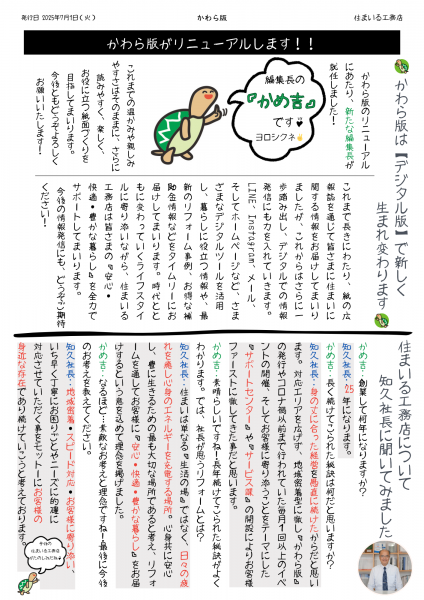 発行日 2025年7月1日(火)
かわら版
住まいる工務店
かわら版がリニューアルします!!
かわら版は【デジタル版】で新しく
生まれ変わります
かわら版のリニューアル
にあたり、新たな編集長が
就任しました!
編集長の
『かめ吉』
です♥
ヨロシクネ
これまでの温かみや親しみ
やすさはそのままに、さらに
読みやすく、楽しく、
お役に立つ紙面づくりを
目指してまいります。
今後ともどうぞよろしく
お願いいたします!
これまで長きにわたり、紙の広
報誌を通じて皆さまに住まいに
関する情報をお届けしてまいり
ましたが、これからはさらに一
歩踏み出し、デジタルでの情報
発信にも力を入れていきます。
LINE、Instagram、メール、
そしてホームページなど、さま
ざまなデジタルツールを活用
し、暮らしに役立つ情報や、最
新のリフォーム事例、お得な補
助金情報などをタイムリーにお
届けしてまいります。時代とと
もに変わっていくライフスタイ
ルに寄り添いながら、住まいる
工務店は皆さまの『安心・
快適・豊かな暮らし』を全力で
サポートしてまいります。
今後の情報発信にも、どうぞご期待
ください!
住まいる工務店について
知久社長に聞いてみました
かめ吉:創業して何年になりますか?
知久社長:25年になります。
かめ吉:長く続けてこられた秘訣は何だと思いますか?
知久社長:身の丈に合った経営を愚直に続けたからだと思い
ます。対応エリアを広げず、地域密着型に徹し『かわら版』
の発行やコロナ禍以前まで行われていた毎月1回以上のイベ
ントの開催、そしてお客様に寄り添うことをテーマにした
『サポートセンター』や『サービス課』の開設によりお客様
ファーストに徹してきた事だと思います。
かめ吉:素晴らしいですね!長年続けてこられた秘訣がよく
わかります。では、社長が思うリフォームとは?
知久社長:住まいは単なる『生活の場』ではなく、日々の疲
れを癒し心身のエネルギーを充電する場所。心身共に安心
し、豊に生きるための最も大切な場所であると考え、リフォ
ームを通してお客様に『安心・快適・豊かな暮らし』をお届
けするという意を込めて理念を掲げました。
かめ吉:なるほど!素敵なお考えと理念ですね!最後に今後
のお考えを教えてください。
知久社長:地域密着・スピード対応・お客様に寄り添い、
いち早く丁寧にお困りごとやニーズに的確に
対応させていただく事をモットーにお客様の
身近な存在であり続けていこうと考えております。
今後の
住まいる工務店が
たのしみだね♥